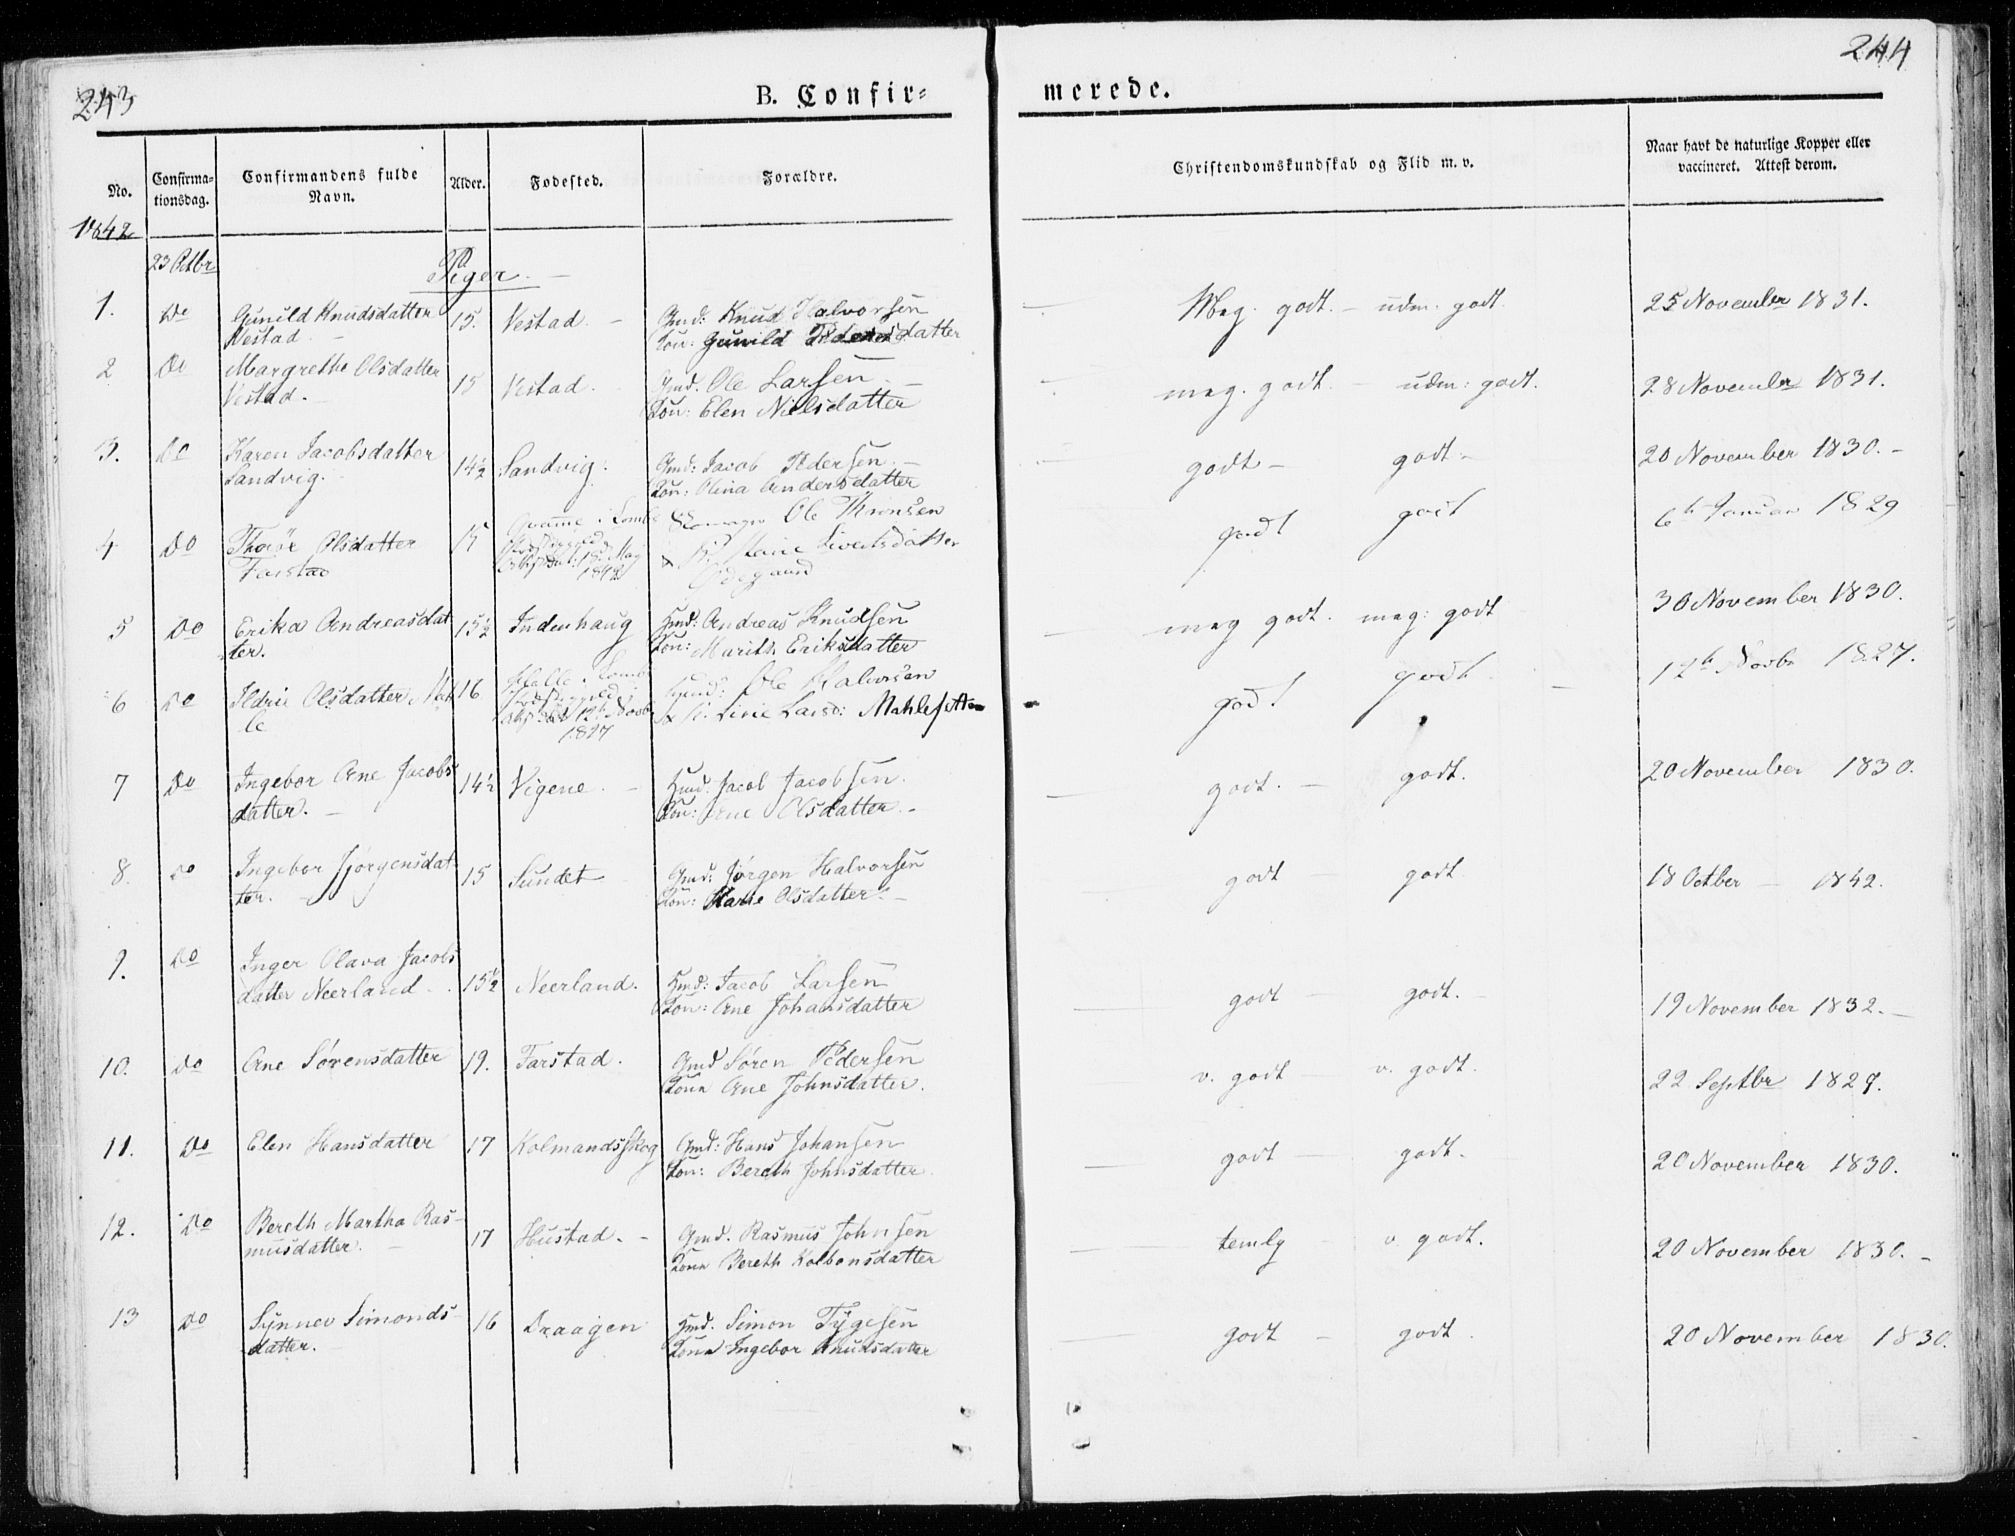 243
244
B. Confir=
merede.
No.
Confirma-
tionsdag.
Confirmandens fulde
Navn.
Alder.
Fødested.
Forældre.
Christendomskundskab og Flid m. v.
Naar havt de naturlige Kopper eller
vaccineret. Attest derom.
1842
23 Octbr
Piger.
1. Do Gunild Knudsdatter 15. Vestad. Gmd: Knud Halvorsen Meg. godt. – udm. godt. 25 November 1831.
Vestad. Kon: Gunild Pedersdatter
2 Do Margrethe Olsdatter 15 Vestad. Gmd. Ole Larsen meg. godt. – udm: godt. 28 November 1831.
Vestad. Kon: Elen Nielsdatter
3. Do Karen Jacobsdatter 14½ Sandvig. Gmd: Jacob Pedersen godt – godt – 20 November 1830. –
Sandvig. Kon: Olina Andersdatter
4 Do Olsdatter i Lomb Ole godt godt 6 Januar 1829
Farstad 1842
5 Do Erika Andreasdat 15½ Indenhaug Gmd: Andreas Knudsen meg godt. meg: godt 30 November 1830.
ter. Kon: Marith Eriksdatter
6 Do Ildrie Olsdatter 16 i Lomb Ole Halvorsen godt godt 12 Novbr 1827.
le Mahlesetter
1827
7 Do Ingebor Ane Jacobs 14½ Vigene. Gmd: Jacob Jacobsen. godt. – godt. 20 November 1830.
datter. Kon: Ane Olsdatter. –
8. Do Ingebor Jørgensdat 15 Sundet Gmd: Jørgen Halvorsen godt godt 18 Octber – 1842.
ter. Kon: Marie Olsdatter. –
9. Do Inger Olava Jacobs 15½ Neerland. Gmd: Jacob Larsen godt godt. – 19 November 1832. –
datter Neerland Kon: Ane Johansdatter
10. Do Ane Sørensdatter 19. Farstad. Gmd Søren Pedersen v. godt v. godt. 22 Septbr 1829.
Kone Ane Johnsdatter.
11. Do Elen Hansdatter 17 Kolmandsskog Gmd: Hans Johansen godt godt. 20 November 1830.
Kon: Bereth Johnsdatter.
12. Do Bereth Martha Ras- 17 Hustad. – Gmd. Rasmus Johnsen temlg v. godt. 20 November 1830. –
musdatter. Kone Bereth Kolbensdatter
13 Do Synnev Simonds- 16 Draagen Gmd. Simon Tygesen godt – godt. 20 November 1830.
datter. Kone Ingebor Knudsdatter